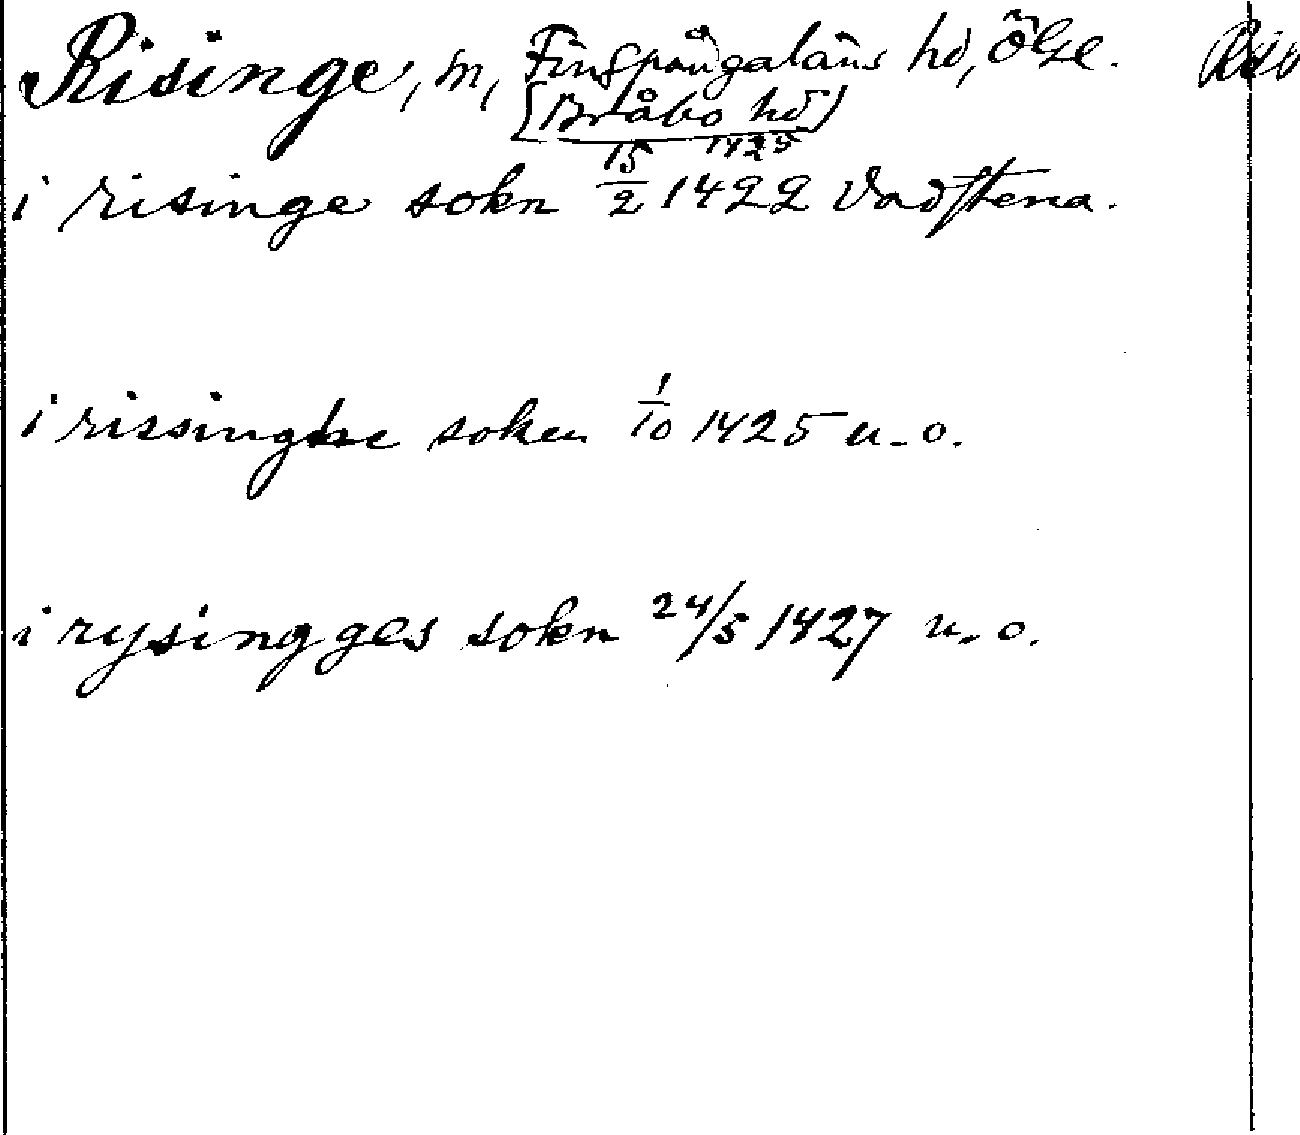 Risinge, sn, Finspångaläns hd, Ögtl.
[Bråbo hd]
1425
i risinge sokn 15/2 1422 Vadstena.
i rissinghe soken 1/10 1425 u. o.
i rysingges sokn 24/5 1427 u. o.